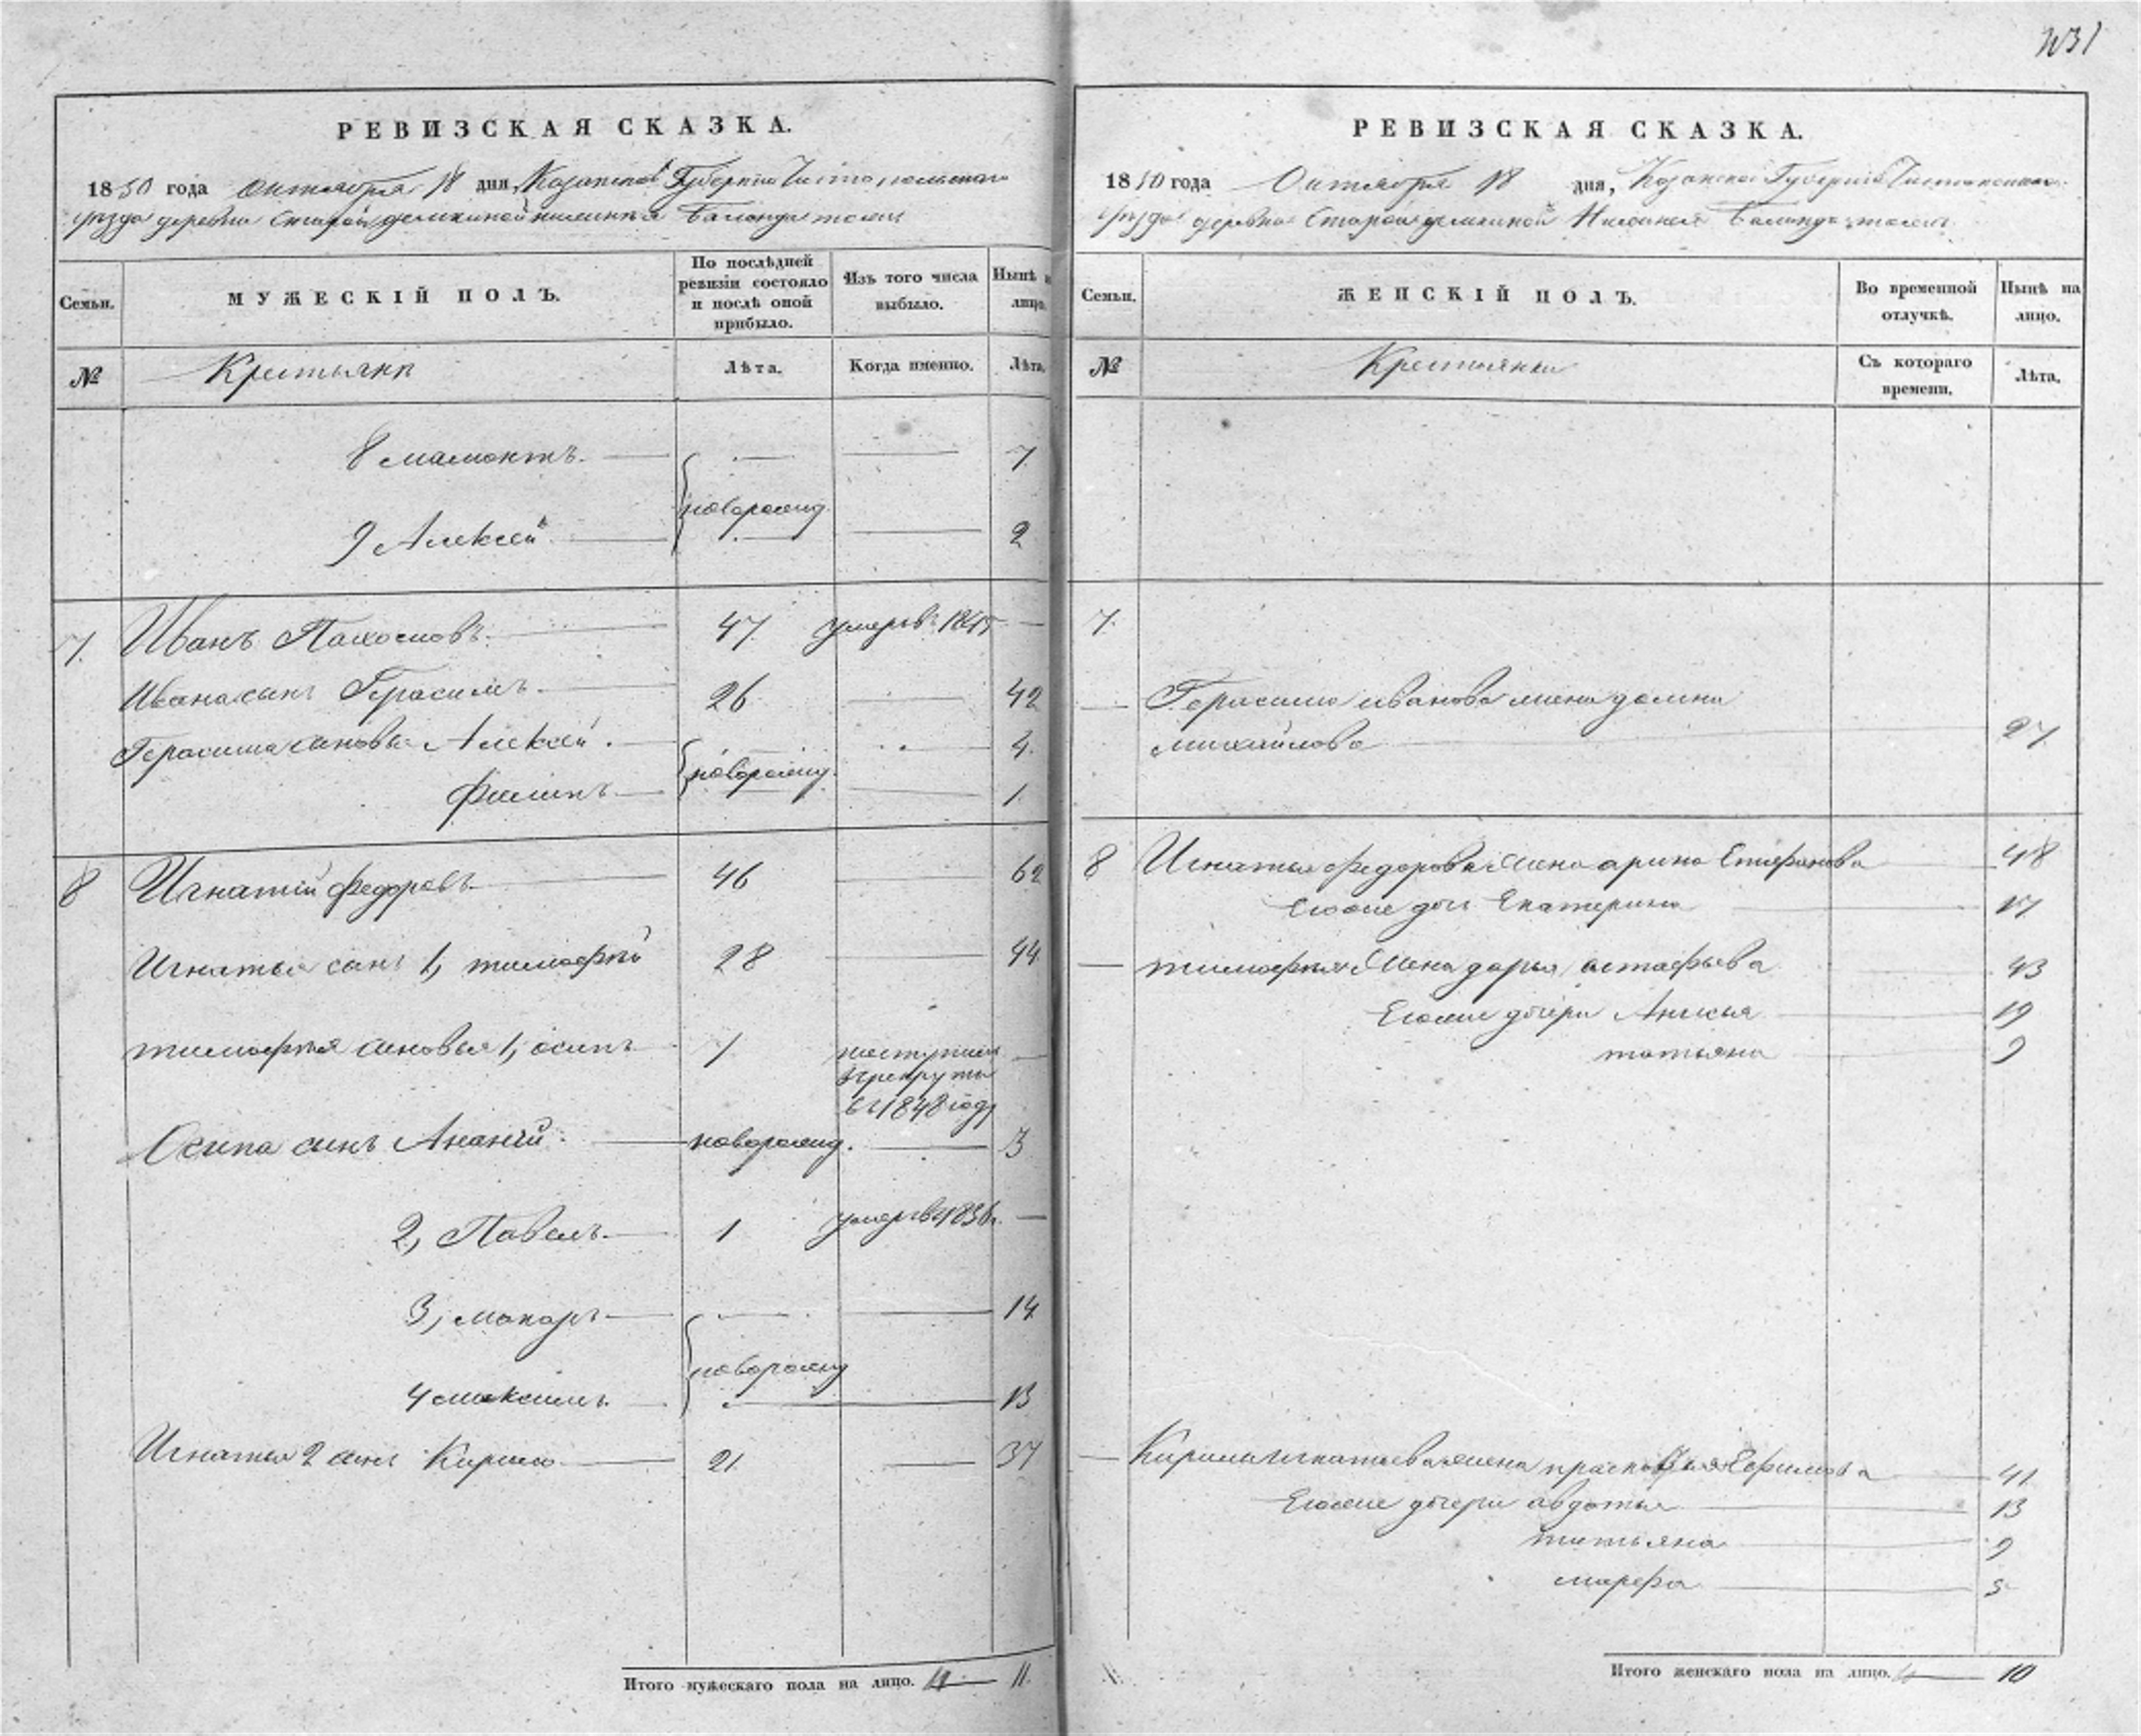 РЕВИЗСКАЯ СКАЗКА.
1850 года Октября 18 дня, Казанской Губернии Чистопольскаго
уезда деревни Старой
Семьи. МУЖЕСКІЙ ПОЛЪ. По послѣдней ревизіи состояло и послѣ оной прибыло. Изъ того числа выбыло. Нынѣ на лицо.
№ Крестьяне Лѣта. Когда именно. Лѣта.
8 мамонтъ 7
новорожд.
9 Алексей 2
7. Иванъ Пахомовъ 47 умеръ в 1845
Ивана сынъ Герасимъ 26 42
Герасима сыновья Алексей 4
новорожд.
филипъ 1
8 Игнатій федоровъ 46 62
Игнатья сынъ 1, тимофей 28 44
тимофея сыновья 1, осипъ 1 поступилъ
в рекруты
в 1848 году
Осипа сынъ Ананій новорожд. 3
2, Павелъ 1 умеръ в 1836
3, макаръ 14
новорожд
4 максимъ 13
Игнатья 2 сынъ Кирило 21 37
Итого мужескаго пола на лицо. 11 11
431
РЕВИЗСКАЯ СКАЗКА.
1850 года Октября 18 дня, Казанской Губерніи Чистопольскаго
уезда деревни Старой
Семьи. ЖЕНСКІЙ ПОЛЪ. Во временной отлучкѣ. Нынѣ на лицо.
№ Крестьянки Съ котораго времени. Лѣта.
7.
Герасима иванова жена домна
михайлова 27
8 Игнатья федорова жена арина Епифанова 48
Егоже дочь Екатерина 17
тимофея жена дарья астафьева 43
Егоже дочери Анисья 19
татьяна 9
Кирила игнатьева жена прасковья Ефимова 41
Егоже дочери авдотья 13
татьяна 9
марфа 5
Итого женскаго пола на лицо. 10